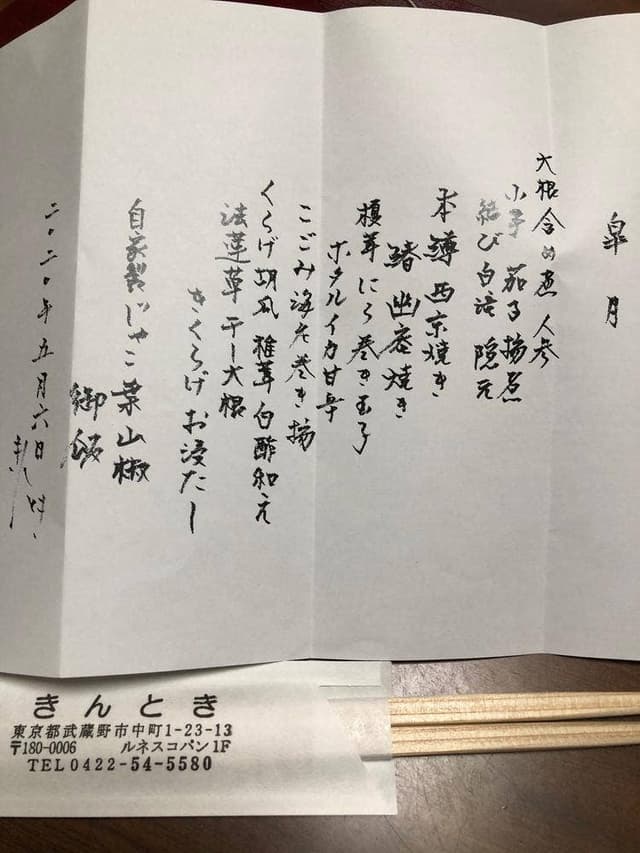 皐月
大根含め煮 人参
小芋 茄子揚煮
結び白滝 隠元
本鰆西京焼き
鰆幽庵焼き
榎茸にら巻き玉子
ホタルイカ甘辛
こごみ海老巻き揚
くらげ胡瓜 椎茸 白酢和え
法蓮草 干し大根
きくらげお浸たし
自家製じゃこ葉山椒
御飯
二〇二〇年五月六日
きんとき
東京都武蔵野市中町1-23-13
〒180-0006 ルネスコパン1F
TEL0422-54-5580